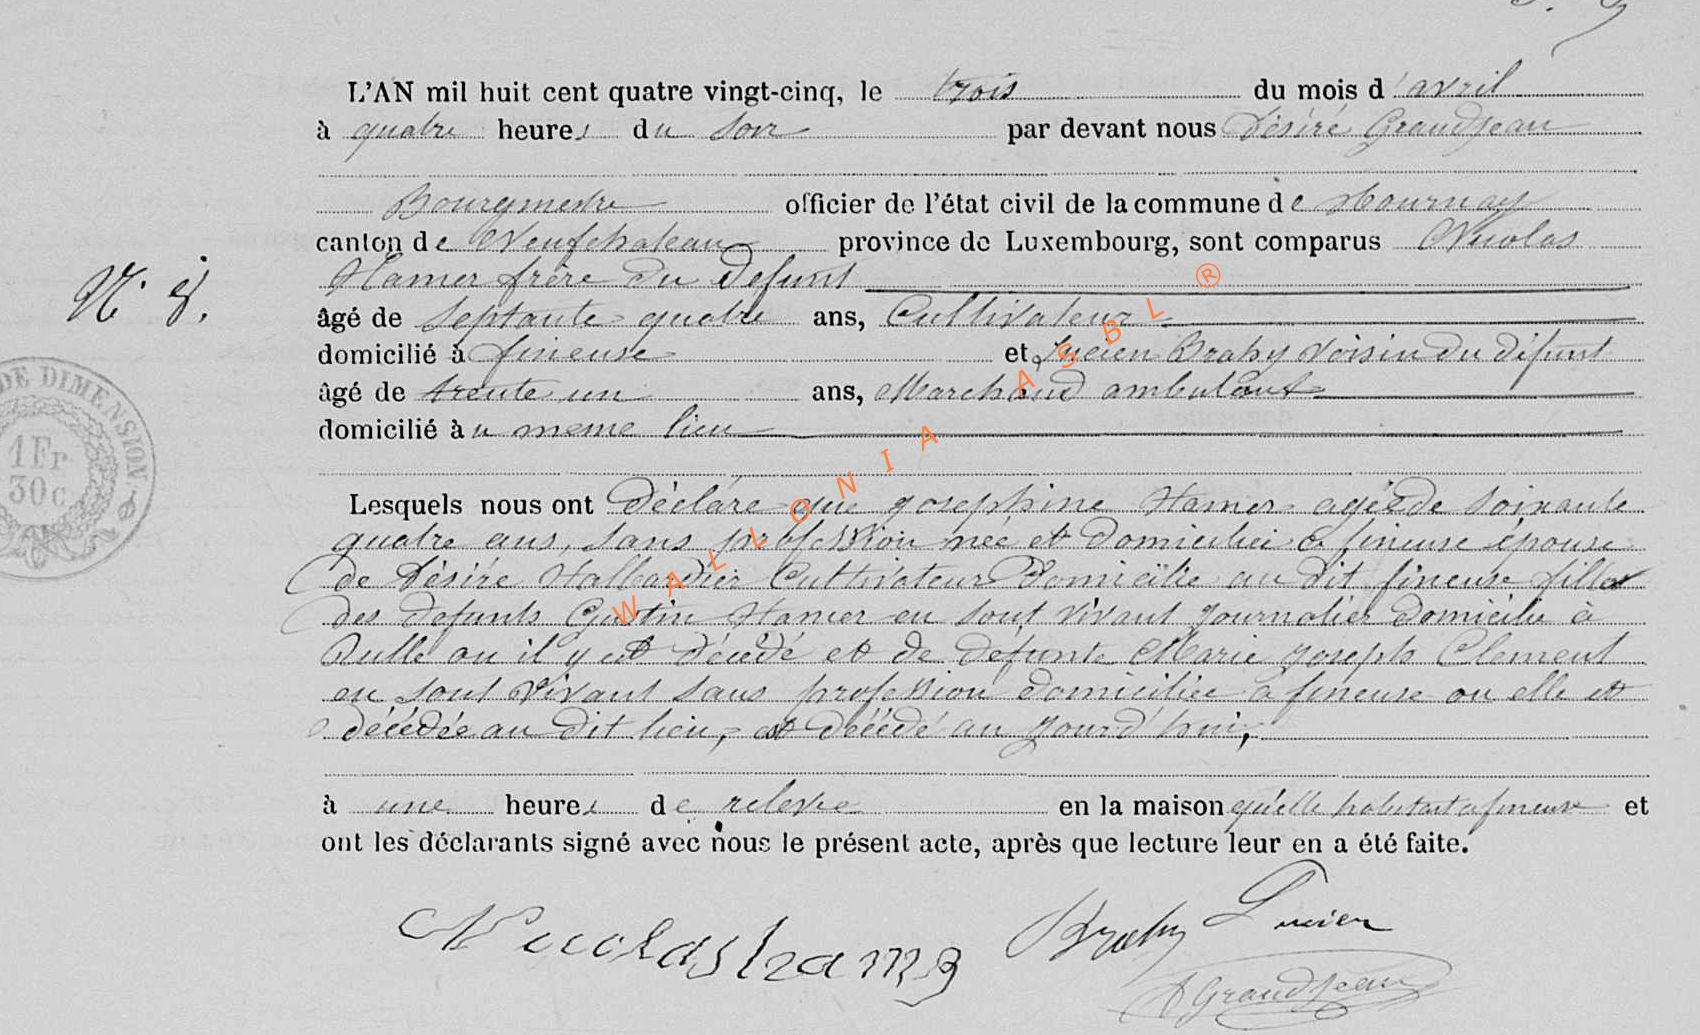 L'AN mil huit cent quatre vingt-cinq, le trois du mois d'avril
à quatre heures du soir par devant nous Désiré Grandjean
Bourgmestre officier de l'état civil de la commune de Tournay
canton de Neufchateau province de Luxembourg, sont comparus Nicolas
Hamer frère du defunt
N. 8.
âgé de septante quatre ans, Cultivateur
domicilié à fineuse et Lucien Brahy voisin du défunt
âgé de trente un ans, Marchand ambulant
domicilié au meme lieu
DE DIMENSION
1 Fr
30 c
Lesquels nous ont déclaré que josephine Hamer agée de soixante
quatre ans, sans profession née et domiciliéi à fineuse épouse
de Désiré Halbardier Cultivateur Domicilié au dit fineuse fille
des defunts Hamer en sont vivant journalier domicilie à
Rulle ou il y est décédé et de défunte Marie joseph Clement
en sont vivant sans profession domiciliée à fineuse ou elle est
décédée au dit lieu, est décédé au jourd'hui,
à une heures de relevée en la maison qu'elle habitait a fineuse et
ont les déclarants signé avec nous le présent acte, après que lecture leur en a été faite.
Nicolas hamer Brahy Lucien
D Grandjean
WALLONIA ASBL ®